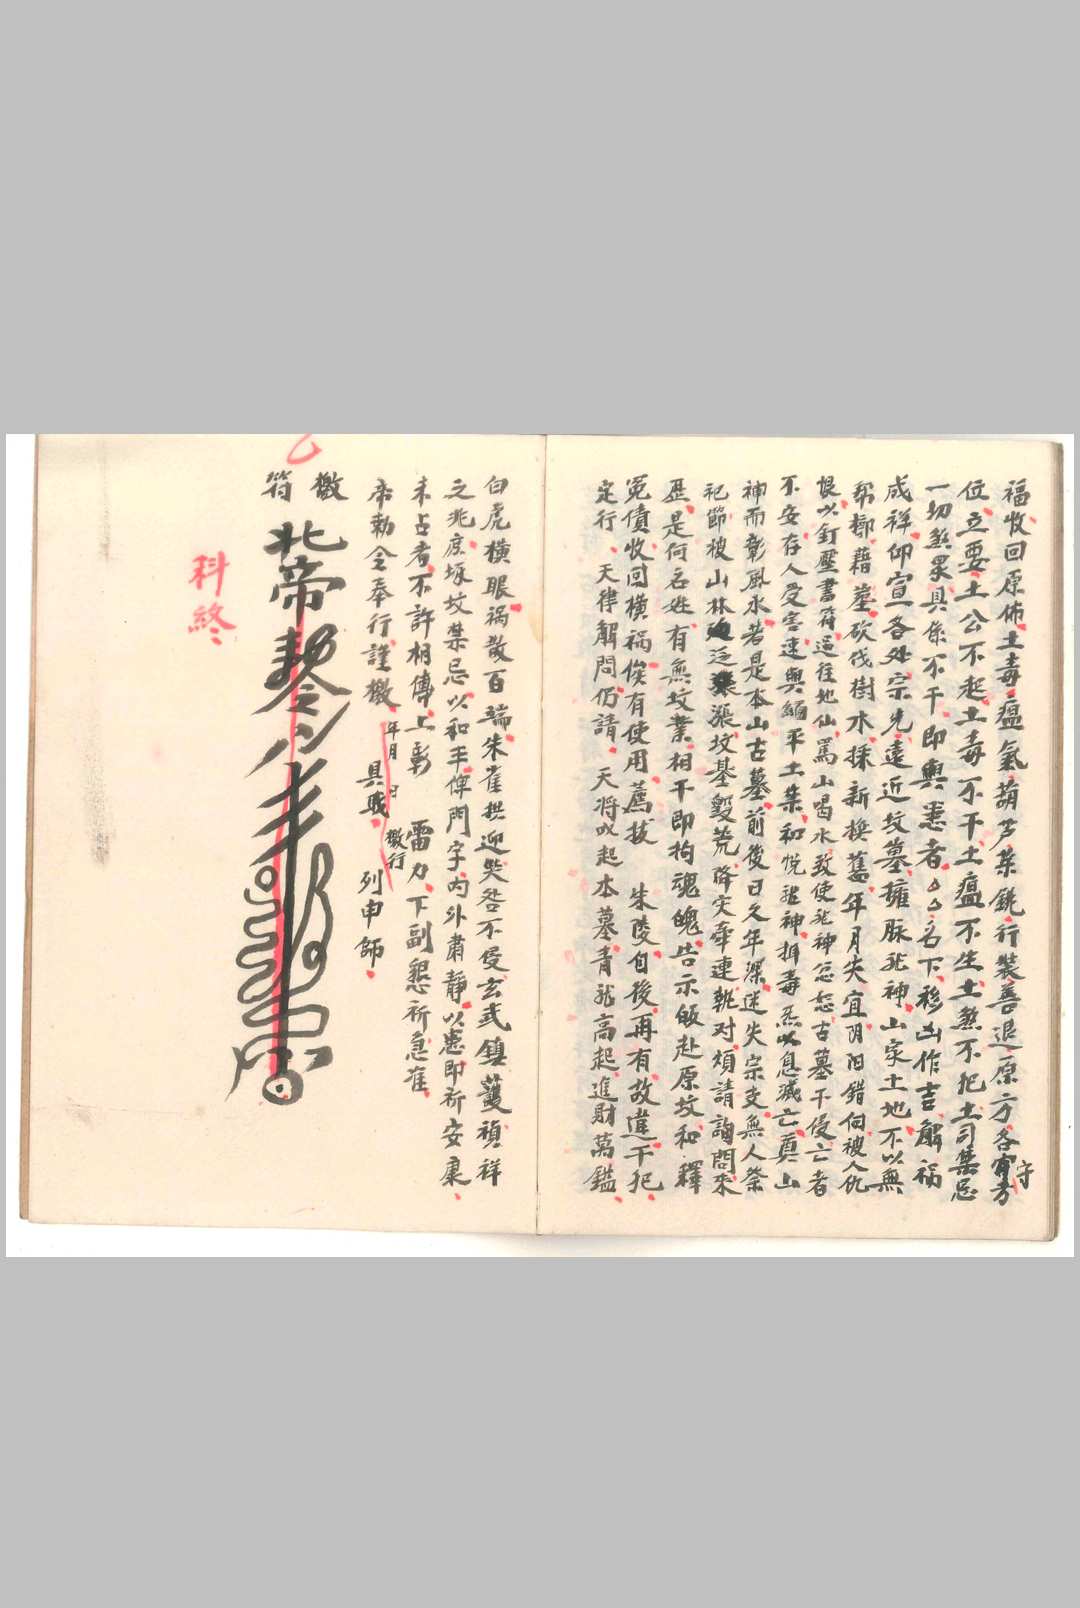 福收回原佈土毒瘟氣葫芦葉銚行裝善退原方各守方
位立要土公不起土毒不干土瘟不生土煞不犯土司集忌
一切煞眾具係不干即輿恙者厶厶名下移凶作吉解禍
成祥仰宣各处宗兄遠近坟墓擁脉龙神山家土地不以無
帮鄉藉墓砍伐樹木採新換舊年月失宜阴阳錯向被人仇
恨以釘壓書符過往地仙罵山喝水致使龙神怎怎古墓干侵亡者
不安存人受害速與緬平土集和悅龙神揖毒炁以息滅亡奠山
神而彰風水若是本山古墓前後日久年深迷失宗支無人祭
祀節被山林泛漲坟基毀荒降灾牽連執对煩請詢問來
歷是何名姓有無坟業相干即拘魂魄告示皈赴原坟和釋
冤債收回橫祸俟有使用薦拔 朱陵自後再有故違干犯
定行 天律解問仍請 天将以起本墓青龙高起進財萬鎰
白虎橫眼祸散百端朱雀拱迎哭咎不侵玄武鎮護禎祥
之兆庶塚坟禁忌以和平俾門字内外肅靜以患即祈安康
未占者不許相傳上彰 雷力下副懇祈急雀
帝勅令奉行謹檄 年月日檄行 具職 列申師
檄
符
北帝
勅令
科終